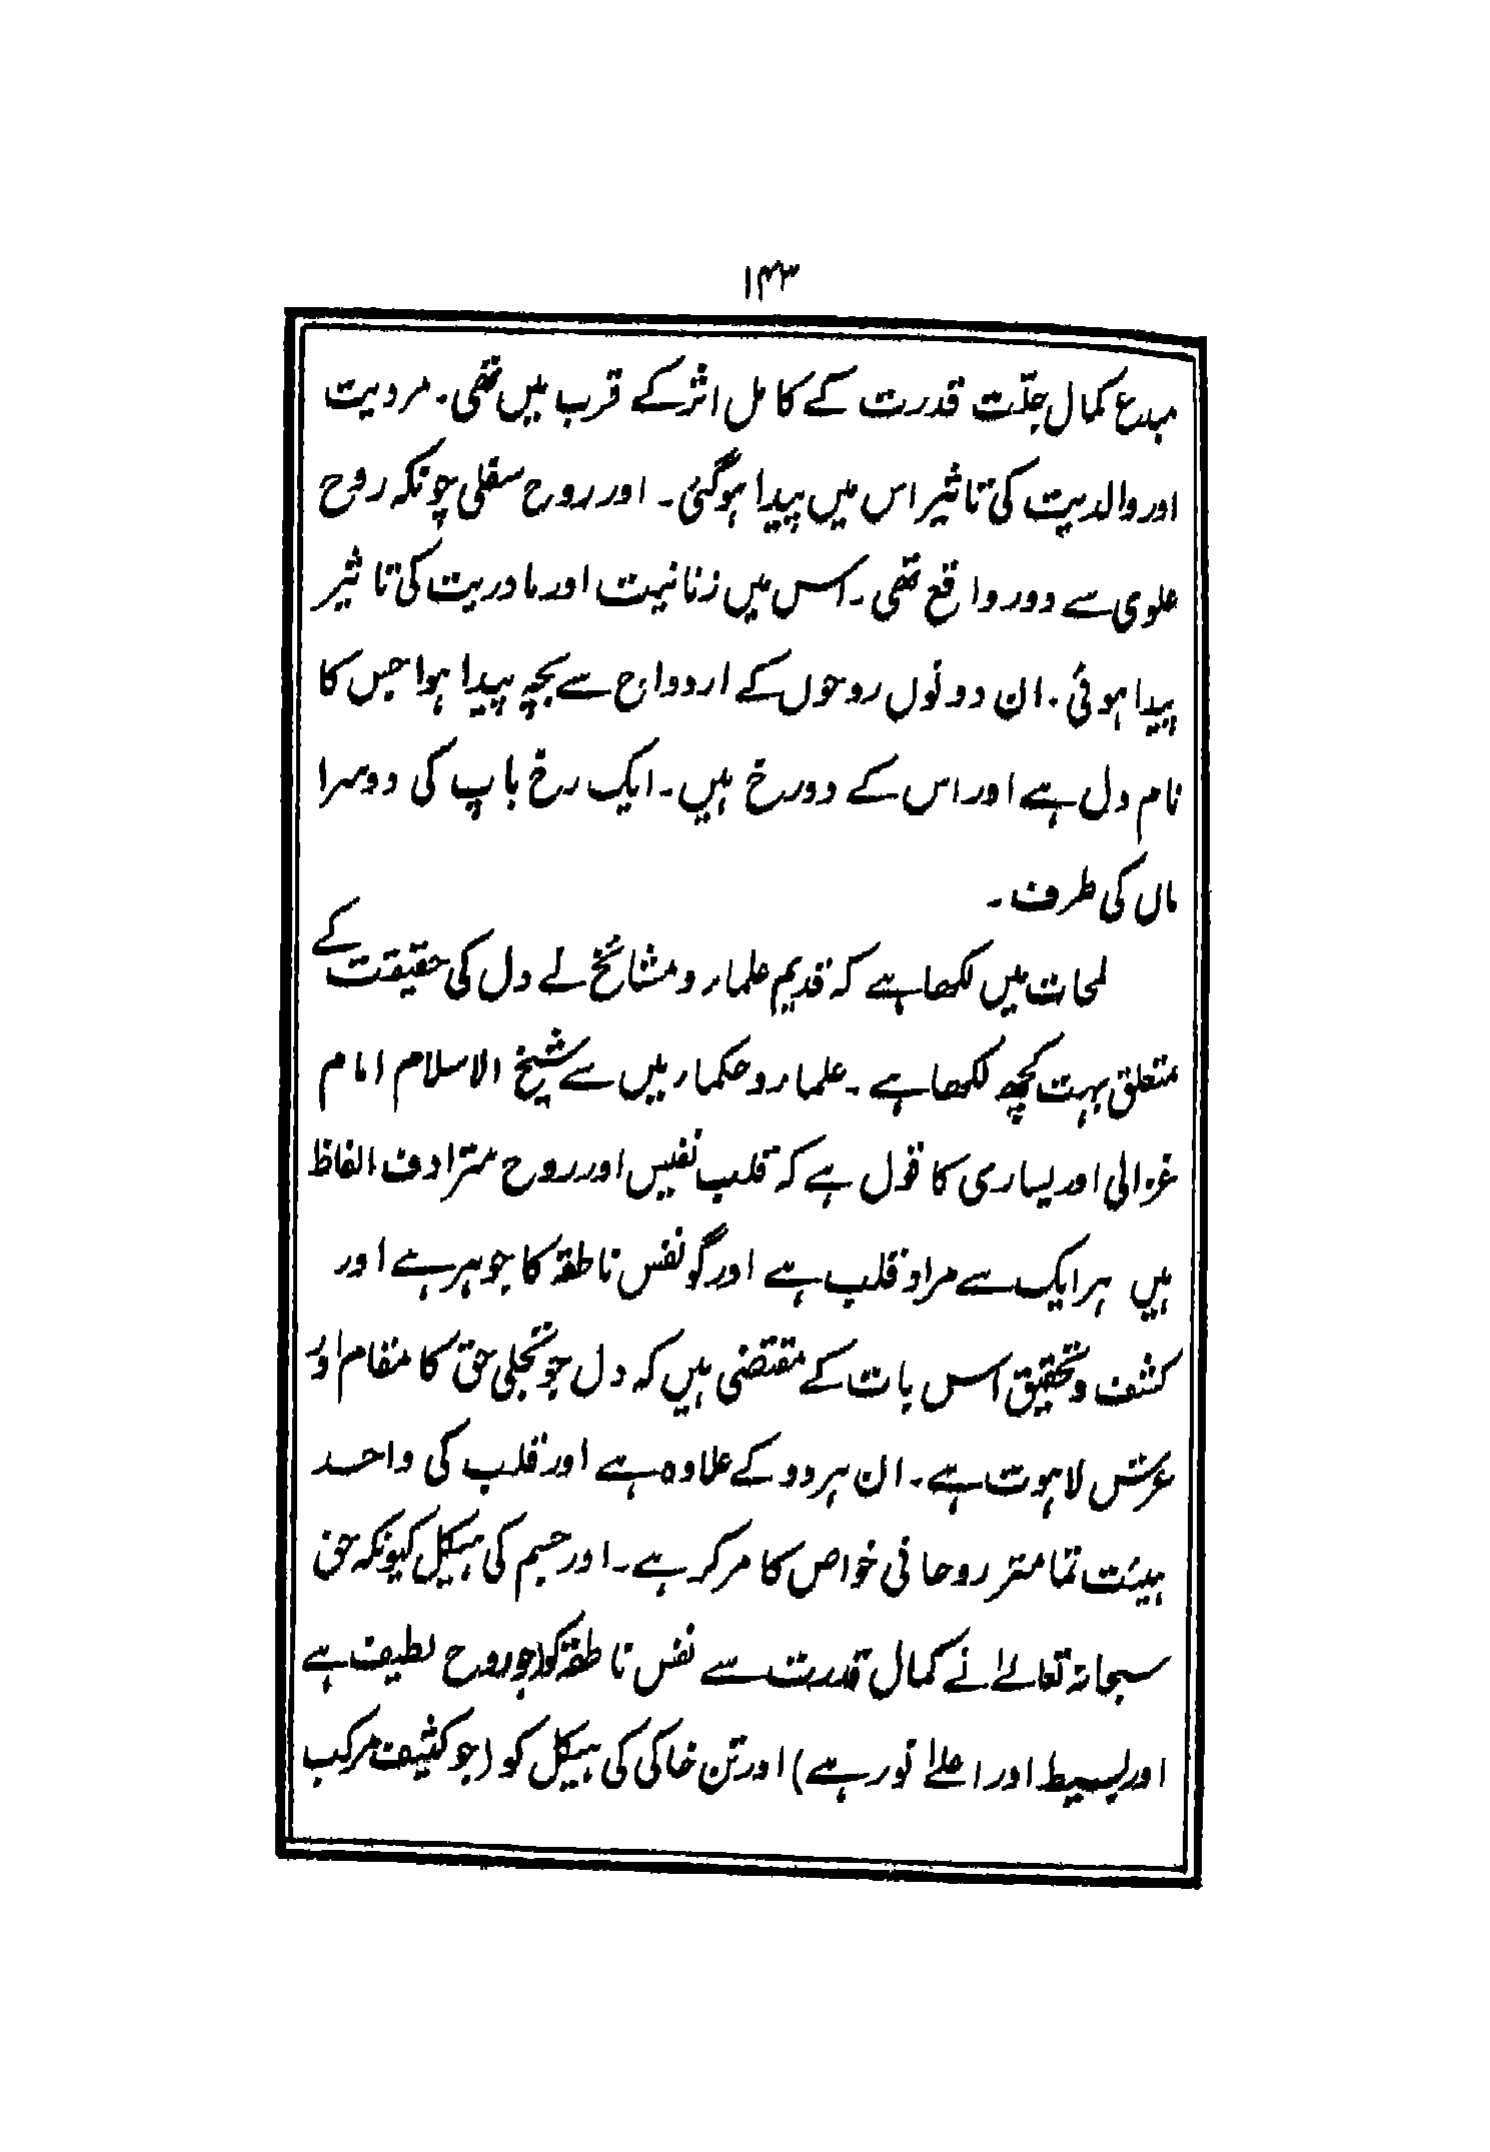 ۱۴۳
مبدع کمال جلّت قدرت کے کامل اثر کے قرب میں تھی۔ مردیت
اور والدیت کی تاثیر اس میں پیدا ہوگئی۔ اور روح سفلی چونکہ روح
علوی سے دور واقع تھی۔ اس میں زنانیت اور مادریت کی تاثیر
پیدا ہوئی۔ ان دونوں روحوں کے ازدواج سے بچہ پیدا ہوا جس کا
نام دل ہے اور اس کے دورخ ہیں۔ ایک رخ باپ کی دوسرا
ماں کی طرف۔
لمحات میں لکھا ہے کہ قدیم علماء و مشائخ نے دل کی حقیقت کے
متعلق بہت کچھ لکھا ہے۔ علماء و حکماء میں سے شیخ الاسلام امام
غزالی اور یساری کا قول ہے کہ قلب نفیس اور روح مترادف الفاظ
ہیں ہر ایک سے مراد قلب ہے اور گو نفس ناطقہ کا جوہر ہے اور
کشف و تحقیق اس بات کے مقتضی ہیں کہ دل جو تجلی حق کا مقام اور
عرش لاہوت ہے۔ ان ہر دو کے علاوہ ہے اور قلب کی واحد
ہیئت تمامتر روحانی خواص کا مرکز ہے۔ اور جسم کی ہیکل کیونکہ حق
سبحانہ تعالےٰ نے کمال قدرت سے نفس ناطقہ کو (جو روح لطیف ہے
اور بسیط اور اعلےٰ نور ہے) اور تن خاکی کی ہیکل کو (جو کثیف مرکب